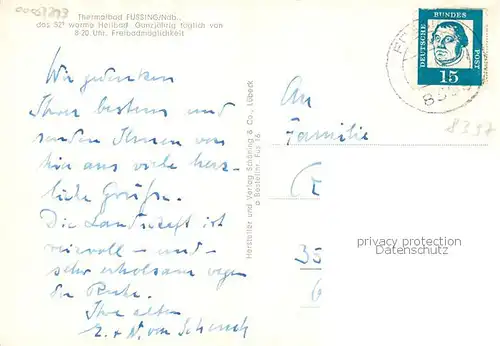 Thermalbad FÜSSING/Ndb.,
das 52° warme Heilbad. Ganzjährig täglich von
8-20 Uhr. Freibademöglichkeit
DEUTSCHE BUNDES POST
15
8397
Wir gedenken
Ihrer bestens und
senden Ihnen von
hier aus viele herz-
liche Grüße.
Die Landschaft ist
reizvoll - und -
sehr erholsam wegen
der Ruhe.
Ihre alten
E. + W. von
Hersteller und Verlag Schöning & Co., Lübeck
Bestellnr. Füs 16
An
Familie
privacy protection
Datenschutz